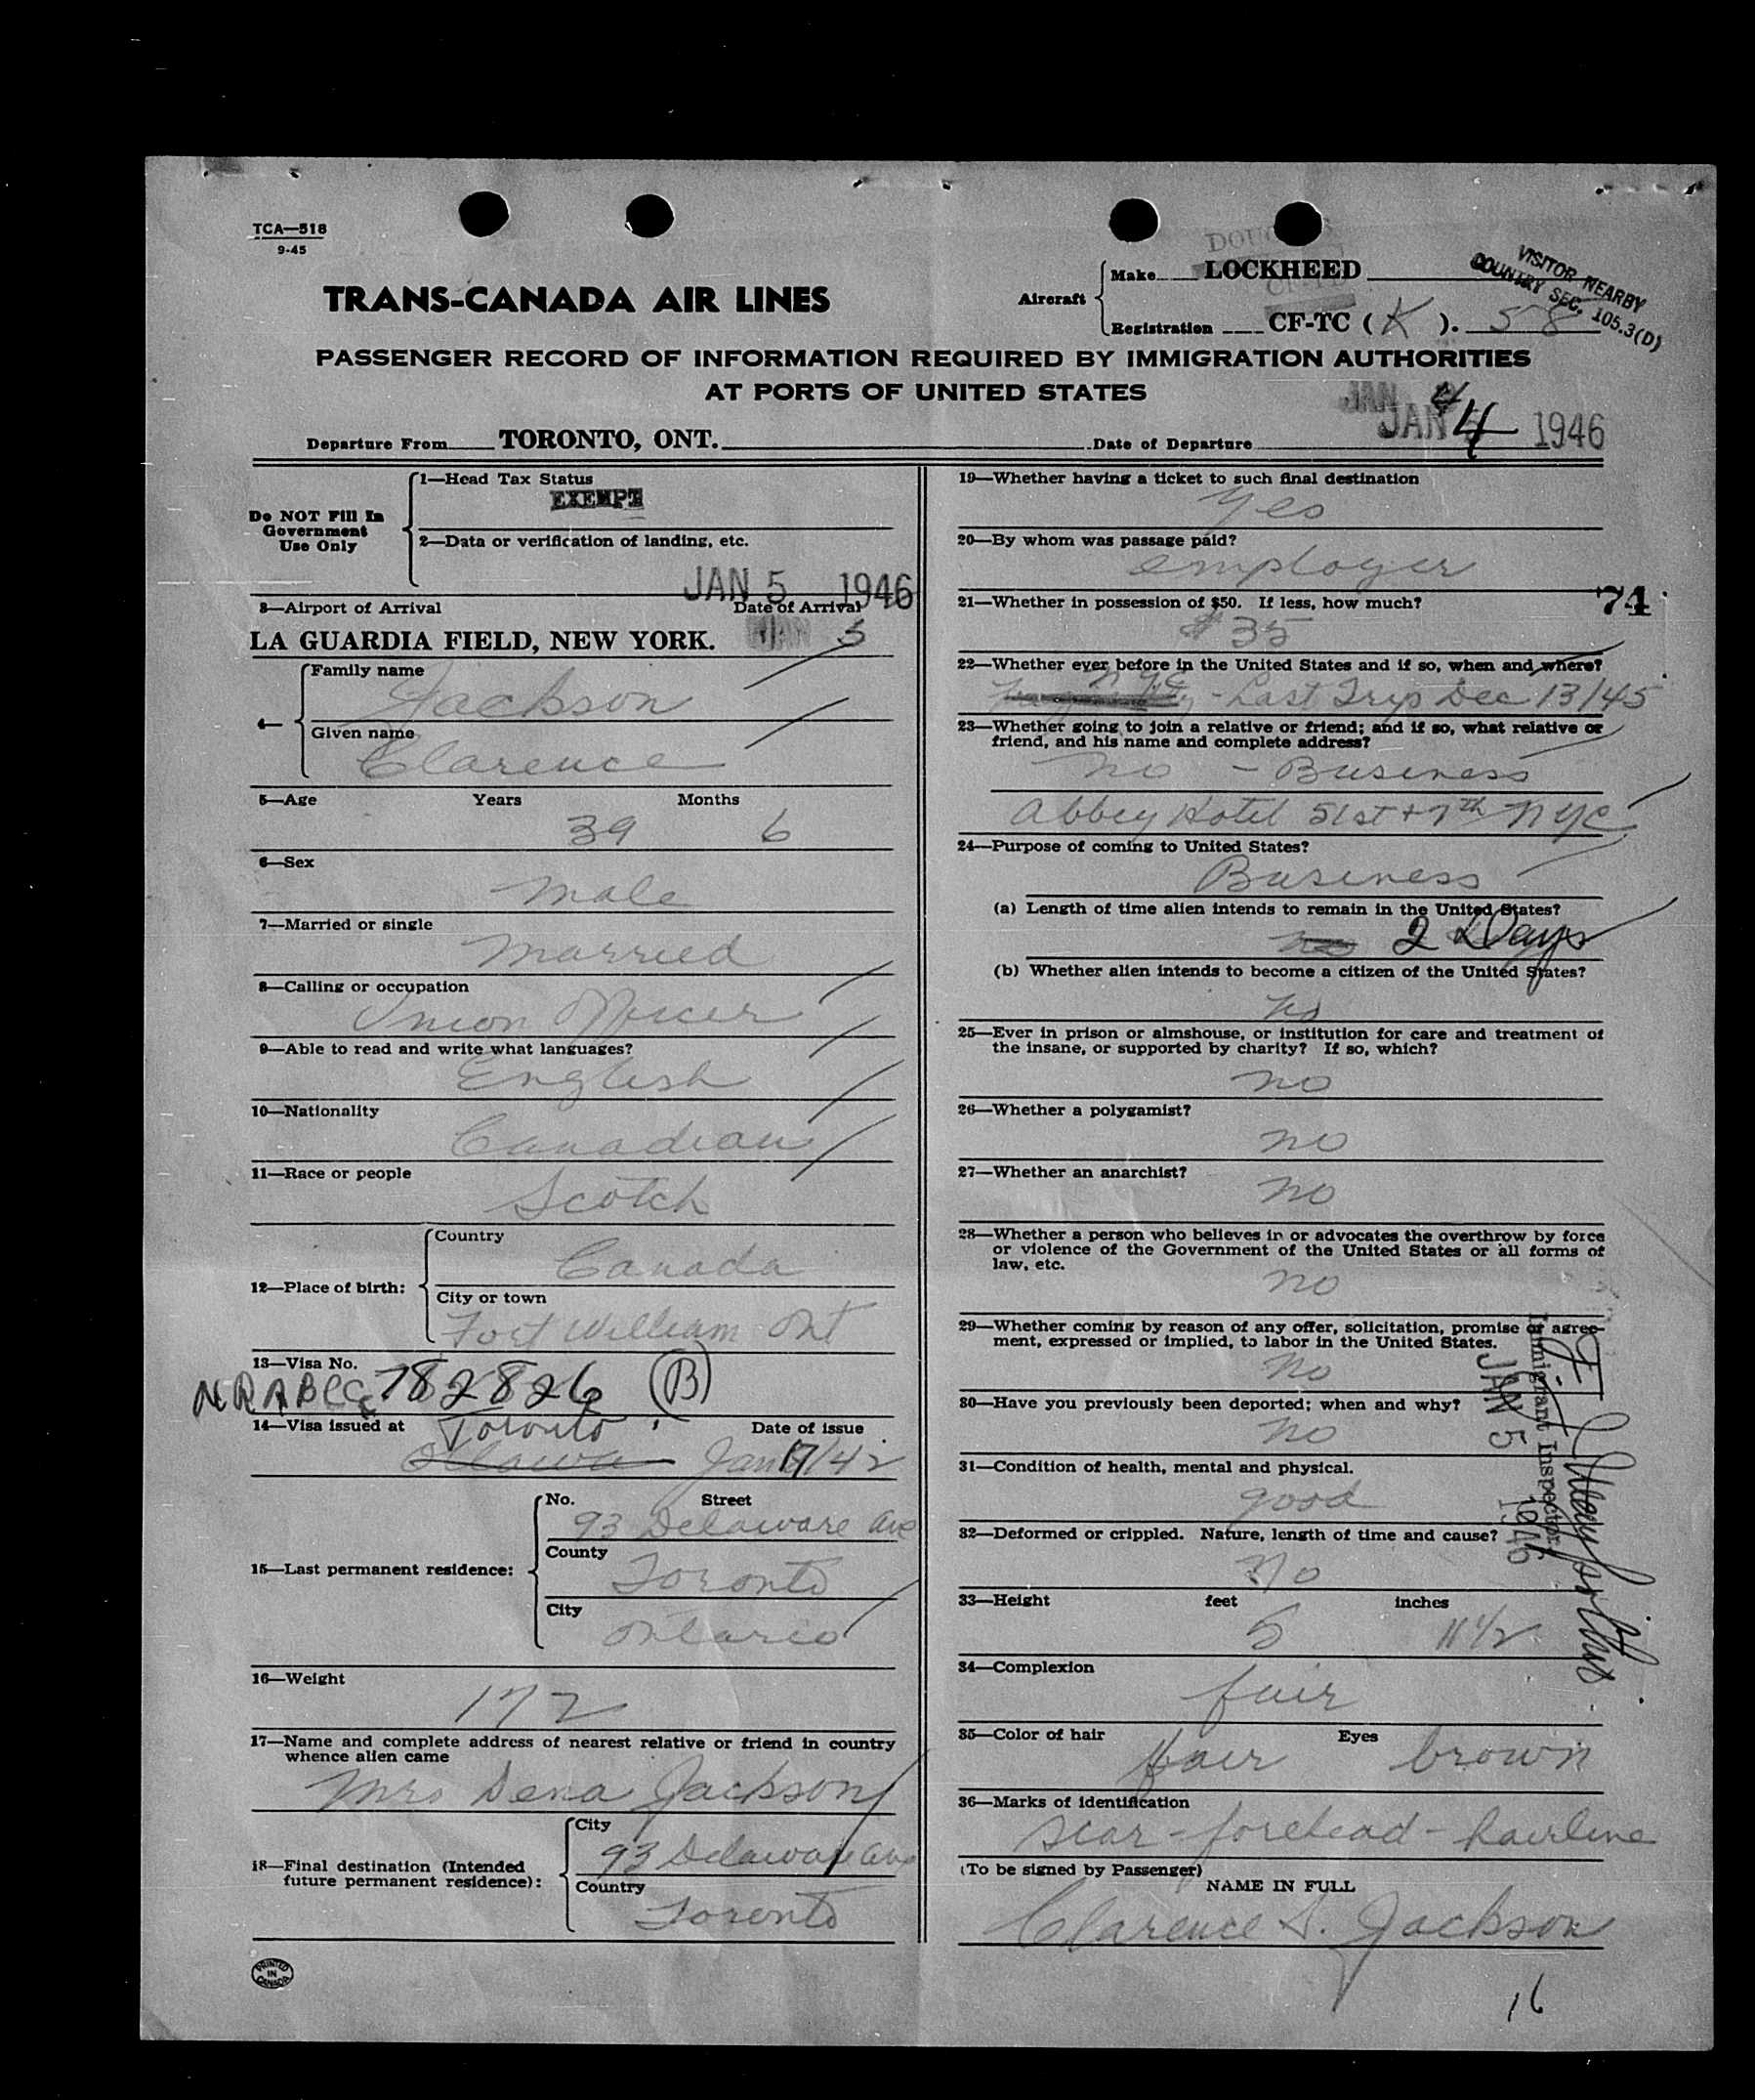 TCA—518
9-45
TRANS-CANADA AIR LINES
Aircraft
Make LOCKHEED
Registration CF-TC ( K ). 58
VISITOR NEARBY
COUNTRY SEC. 105.3(D)
PASSENGER RECORD OF INFORMATION REQUIRED BY IMMIGRATION AUTHORITIES
AT PORTS OF UNITED STATES
Departure From TORONTO, ONT. Date of Departure JAN 4 1946
Do NOT Fill In
Government
Use Only
1—Head Tax Status
EXEMPT
2—Data or verification of landing, etc.
JAN 5 1946
3—Airport of Arrival Date of Arrival
LA GUARDIA FIELD, NEW YORK. JAN 5
4—
Family name
Jackson
Given name
Clarence
5—Age Years Months
39 6
6—Sex
male
7—Married or single
Married
8—Calling or occupation
Union Officer
9—Able to read and write what languages?
English
10—Nationality
Canadian
11—Race or people
Scotch
12—Place of birth:
Country
Canada
City or town
Fort William Ont
13—Visa No.
NRABCC 782826 (B)
14—Visa issued at Toronto Date of issue
Ottawa Jan 17/42
15—Last permanent residence:
No. Street
93 Delaware Ave
County
Toronto
City
Ontario
16—Weight
172
17—Name and complete address of nearest relative or friend in country
whence alien came
Mrs Dena Jackson
18—Final destination (Intended
future permanent residence):
City
93 Delaware Ave
Country
Toronto
PRINTED
IN
CANADA
19—Whether having a ticket to such final destination
yes
20—By whom was passage paid?
employer
21—Whether in possession of $50. If less, how much? 74
$35
22—Whether ever before in the United States and if so, when and where?
NYC - Last Trip Dec 13/45
23—Whether going to join a relative or friend; and if so, what relative or
friend, and his name and complete address?
no - Business
Abbey Hotel 51st + 7th NYC
24—Purpose of coming to United States?
Business
(a) Length of time alien intends to remain in the United States?
2 Days
(b) Whether alien intends to become a citizen of the United States?
no
25—Ever in prison or almshouse, or institution for care and treatment of
the insane, or supported by charity? If so, which?
no
26—Whether a polygamist?
no
27—Whether an anarchist?
no
28—Whether a person who believes in or advocates the overthrow by force
or violence of the Government of the United States or all forms of
law, etc.
no
29—Whether coming by reason of any offer, solicitation, promise or agree-
ment, expressed or implied, to labor in the United States.
no
30—Have you previously been deported; when and why?
no
31—Condition of health, mental and physical.
good
32—Deformed or crippled. Nature, length of time and cause?
no
JAN 5 1946
Immigrant Inspector
33—Height feet inches
5 11 1/2
34—Complexion
fair
35—Color of hair Eyes
fair brown
36—Marks of identification
scar - forehead - hairline
(To be signed by Passenger)
NAME IN FULL
Clarence S. Jackson
16